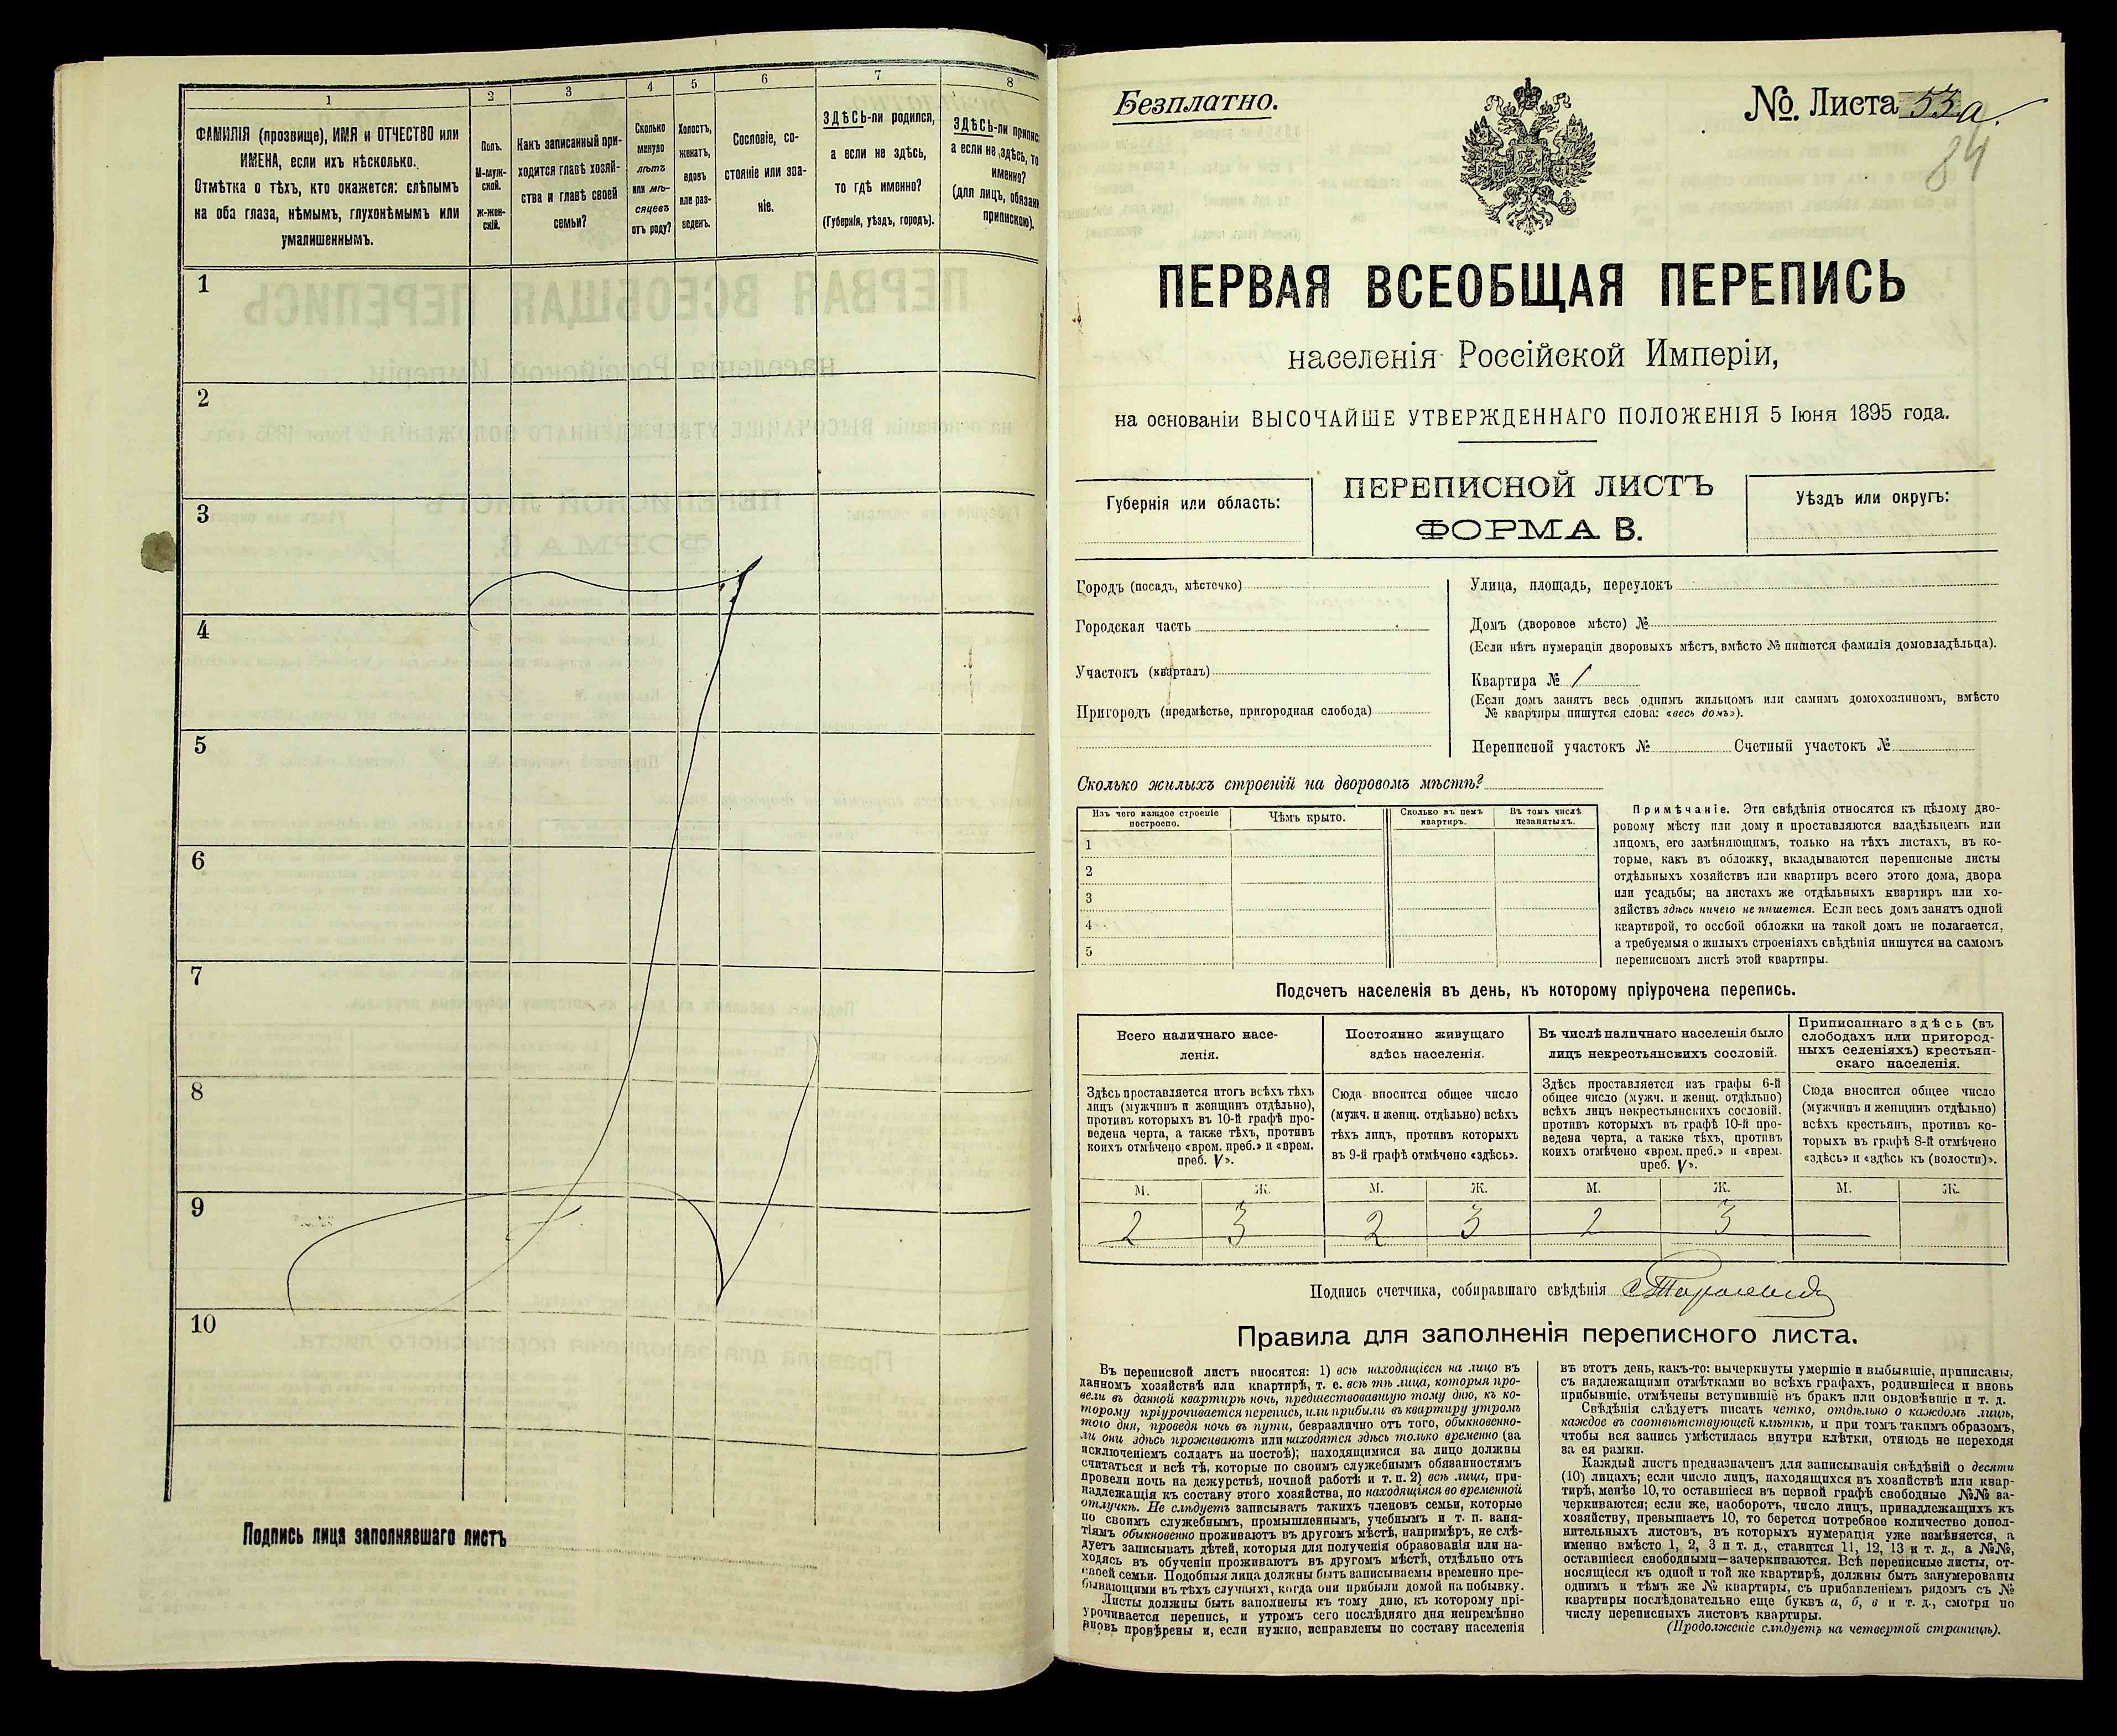 1
2
3
4
5
6
7
8
ФАМИЛІЯ (прозвище), ИМЯ и ОТЧЕСТВО или
ИМЕНА, если ихъ нѣсколько.
Отмѣтка о тѣхъ, кто окажется: слѣпымъ
на оба глаза, нѣмымъ, глухонѣмымъ или
умалишеннымъ.
Полъ.
М-муж-
ской.
Ж-жен-
скій.
Какъ записанный при-
ходится главѣ хозяй-
ства и главѣ своей
семьи?
Сколько
минуло
лѣтъ
или мѣ-
сяцевъ
отъ роду?
Холостъ,
женатъ,
вдовъ
или раз-
веденъ.
Сословіе, со-
стояніе или зва-
ніе.
ЗДѢСЬ-ли родился,
а если не здѣсь,
то гдѣ именно?
(Губернія, уѣздъ, городъ).
ЗДѢСЬ-ли припис
а если не здѣсь, то
именно?
(для лицъ, обязан
припискою).
1
2
3
4
5
6
7
8
9
10
Подпись лица заполнявшаго листъ
Безплатно.
№. Листа 53а.
84
ПЕРВАЯ ВСЕОБЩАЯ ПЕРЕПИСЬ
населенія Россійской Имперіи,
на основаніи ВЫСОЧАЙШЕ УТВЕРЖДЕННАГО ПОЛОЖЕНІЯ 5 Іюня 1895 года.
Губернія или область:
ПЕРЕПИСНОЙ ЛИСТЪ
ФОРМА В.
Уѣздъ или округъ:
Городъ (посадъ, мѣстечко)
Городская часть
Участокъ (кварталъ)
Пригородъ (предмѣстье, пригородная слобода)
Улица, площадь, переулокъ
Домъ (дворовое мѣсто) №
(Если нѣтъ нумераціи дворовыхъ мѣстъ, вмѣсто № пишется фамилія домовладѣльца).
Квартира № 1
(Если домъ занятъ весь однимъ жильцомъ или самимъ домохозяиномъ, вмѣсто
№ квартиры пишутся слова: «весь домъ»).
Переписной участокъ № Счетный участокъ №
Сколько жилыхъ строеній на дворовомъ мѣстѣ?
Изъ чего каждое строеніе
построено.
Чѣмъ крыто.
Сколько въ немъ
квартиръ.
Въ томъ числѣ
незанятыхъ.
1
2
3
4
5
Примѣчаніе. Эти свѣдѣнія относятся къ цѣлому дво-
ровому мѣсту или дому и проставляются владѣльцемъ или
лицомъ, его замѣняющимъ, только на тѣхъ листахъ, въ ко-
торые, какъ въ обложку, вкладываются переписные листы
отдѣльныхъ хозяйствъ или квартиръ всего этого дома, двора
или усадьбы; на листахъ же отдѣльныхъ квартиръ или хо-
зяйствъ здѣсь ничего не пишется. Если весь домъ занятъ одной
квартирой, то особой обложки на такой домъ не полагается,
а требуемыя о жилыхъ строеніяхъ свѣдѣнія пишутся на самомъ
переписномъ листѣ этой квартиры.
Подсчетъ населенія въ день, къ которому пріурочена перепись.
Всего наличнаго насе-
ленія.
Здѣсь проставляется итогъ всѣхъ тѣхъ
лицъ (мужчинъ и женщинъ отдѣльно),
противъ которыхъ въ 10-й графѣ про-
ведена черта, а также тѣхъ, противъ
коихъ отмѣчено «врем. преб.» и «врем.
преб. V».
Постоянно живущаго
здѣсь населенія.
Сюда вносится общее число
(мужч. и женщ. отдѣльно) всѣхъ
тѣхъ лицъ, противъ которыхъ
въ 9-й графѣ отмѣчено «здѣсь».
Въ числѣ наличнаго населенія было
лицъ некрестьянскихъ сословій.
Здѣсь проставляется изъ графы 6-й
общее число (мужч. и женщ. отдѣльно)
всѣхъ лицъ некрестьянскихъ сословій,
противъ которыхъ въ графѣ 10-й про-
ведена черта, а также тѣхъ, противъ
коихъ отмѣчено «врем. преб.» и «врем.
преб. V».
Приписаннаго здѣсь (въ
слободахъ или пригород-
ныхъ селеніяхъ) крестьян-
скаго населенія.
Сюда вносится общее число
(мужчинъ и женщинъ отдѣльно)
всѣхъ крестьянъ, противъ ко-
торыхъ въ графѣ 8-й отмѣчено
«здѣсь» и «здѣсь къ (волости)».
М. Ж. М. Ж. М. Ж. М. Ж.
2 3 2 3 2 3
Подпись счетчика, собиравшаго свѣдѣнія
Правила для заполненія переписного листа.
Въ переписной листъ вносятся: 1) всѣ находящіеся на лицо въ
данномъ хозяйствѣ или квартирѣ, т. е. всѣ тѣ лица, которыя про-
вели въ данной квартирѣ ночь, предшествовавшую тому дню, къ ко-
торому пріурочивается перепись, или прибыли въ квартиру утромъ
того дня, проведя ночь въ пути, безразлично отъ того, обыкновенно-
ли они здѣсь проживаютъ или находятся здѣсь только временно (за
исключеніемъ солдатъ на постоѣ); находящимися на лицо должны
считаться и всѣ тѣ, которые по своимъ служебнымъ обязанностямъ
провели ночь на дежурствѣ, ночной работѣ и т. п. 2) всѣ лица, при-
надлежащія къ составу этого хозяйства, но находящіяся во временной
отлучкѣ. Не слѣдуетъ записывать такихъ членовъ семьи, которые
по своимъ служебнымъ, промышленнымъ, учебнымъ и т. п. заня-
тіямъ обыкновенно проживаютъ въ другомъ мѣстѣ, напримѣръ, не слѣ-
дуетъ записывать дѣтей, которыя для полученія образованія или на-
ходясь въ обученіи проживаютъ въ другомъ мѣстѣ, отдѣльно отъ
своей семьи. Подобныя лица должны быть записываемы временно пре-
бывающими въ тѣхъ случаяхъ, когда они прибыли домой на побывку.
Листы должны быть заполнены къ тому дню, къ которому прі-
урочивается перепись, и утромъ сего послѣдняго дня непремѣнно
вновь провѣрены и, если нужно, исправлены по составу населенія
въ этотъ день, какъ-то: вычеркнуты умершіе и выбывшіе, приписаны,
съ надлежащими отмѣтками во всѣхъ графахъ, родившіеся и вновь
прибывшіе, отмѣчены вступившіе въ бракъ или овдовѣвшіе и т. д.
Свѣдѣнія слѣдуетъ писать четко, отдѣльно о каждомъ лицѣ,
каждое въ соотвѣтствующей клѣткѣ, и при томъ такимъ образомъ,
чтобы вся запись умѣстилась внутри клѣтки, отнюдь не переходя
за ея рамки.
Каждый листъ предназначенъ для записыванія свѣдѣній о десяти
(10) лицахъ; если число лицъ, находящихся въ хозяйствѣ или квар-
тирѣ, менѣе 10, то оставшіеся въ первой графѣ свободные №№ за-
черкиваются; если же, наоборотъ, число лицъ, принадлежащихъ къ
хозяйству, превышаетъ 10, то берется потребное количество допол-
нительныхъ листовъ, въ которыхъ нумерація уже измѣняется, а
именно вмѣсто 1, 2, 3 и т. д., ставится 11, 12, 13 и т. д., а №№,
оставшіеся свободными—зачеркиваются. Всѣ переписные листы, от-
носящіеся къ одной и той же квартирѣ, должны быть занумерованы
однимъ и тѣмъ же № квартиры, съ прибавленіемъ рядомъ съ №
квартиры послѣдовательно еще буквъ а, б, в и т. д., смотря по
числу переписныхъ листовъ квартиры.
(Продолженіе слѣдуетъ на четвертой страницѣ).